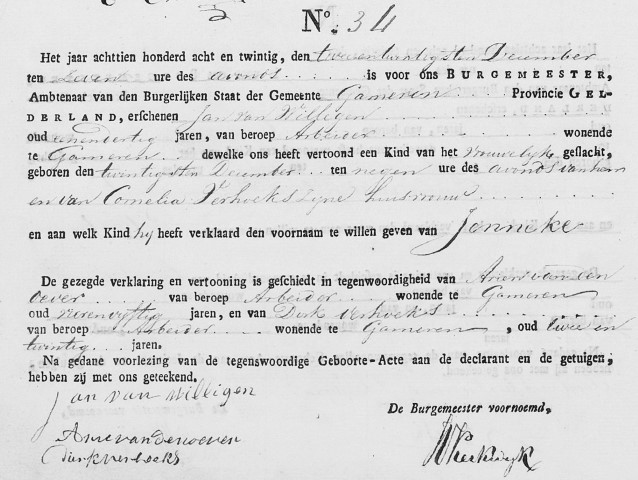 No. 34
Het jaar achttien honderd acht en twintig, den tweeentwintigsten December
ten zeven ure des avonds is voor ons BURGEMEESTER,
Ambtenaar van den Burgerlijken Staat der Gemeente Gameren Provincie GEL-
DERLAND, erschenen Jan van Willigen
oud eenendertig jaren, van beroep Arbeider wonende
te Gameren dewelke ons heeft vertoond een Kind van het vrouwelijk geslacht,
geboren den twintigsten December ten negen ure des avonds van hem
en van Cornelia Verhoeks zijne huisvrouw
en aan welk Kind hij heeft verklaard den voornaam te willen geven van Janneke
De gezegde verklaring en vertooning is geschiedt in tegenwoordigheid van Arie van den
Oever van beroep Arbeider wonende te Gameren
oud vijftig jaren, en van Dirk Verhoeks
van beroep Arbeider wonende te Gameren, oud twee en
twintig jaren.
Na gedane voorlezing van de tegenswoordige Geboorte-Acte aan de declarant en de getuigen,
hebben zij met ons geteekend.
Jan van Willigen
De Burgemeester voornoemd,
Arie van den oever
Dirk verhoeks